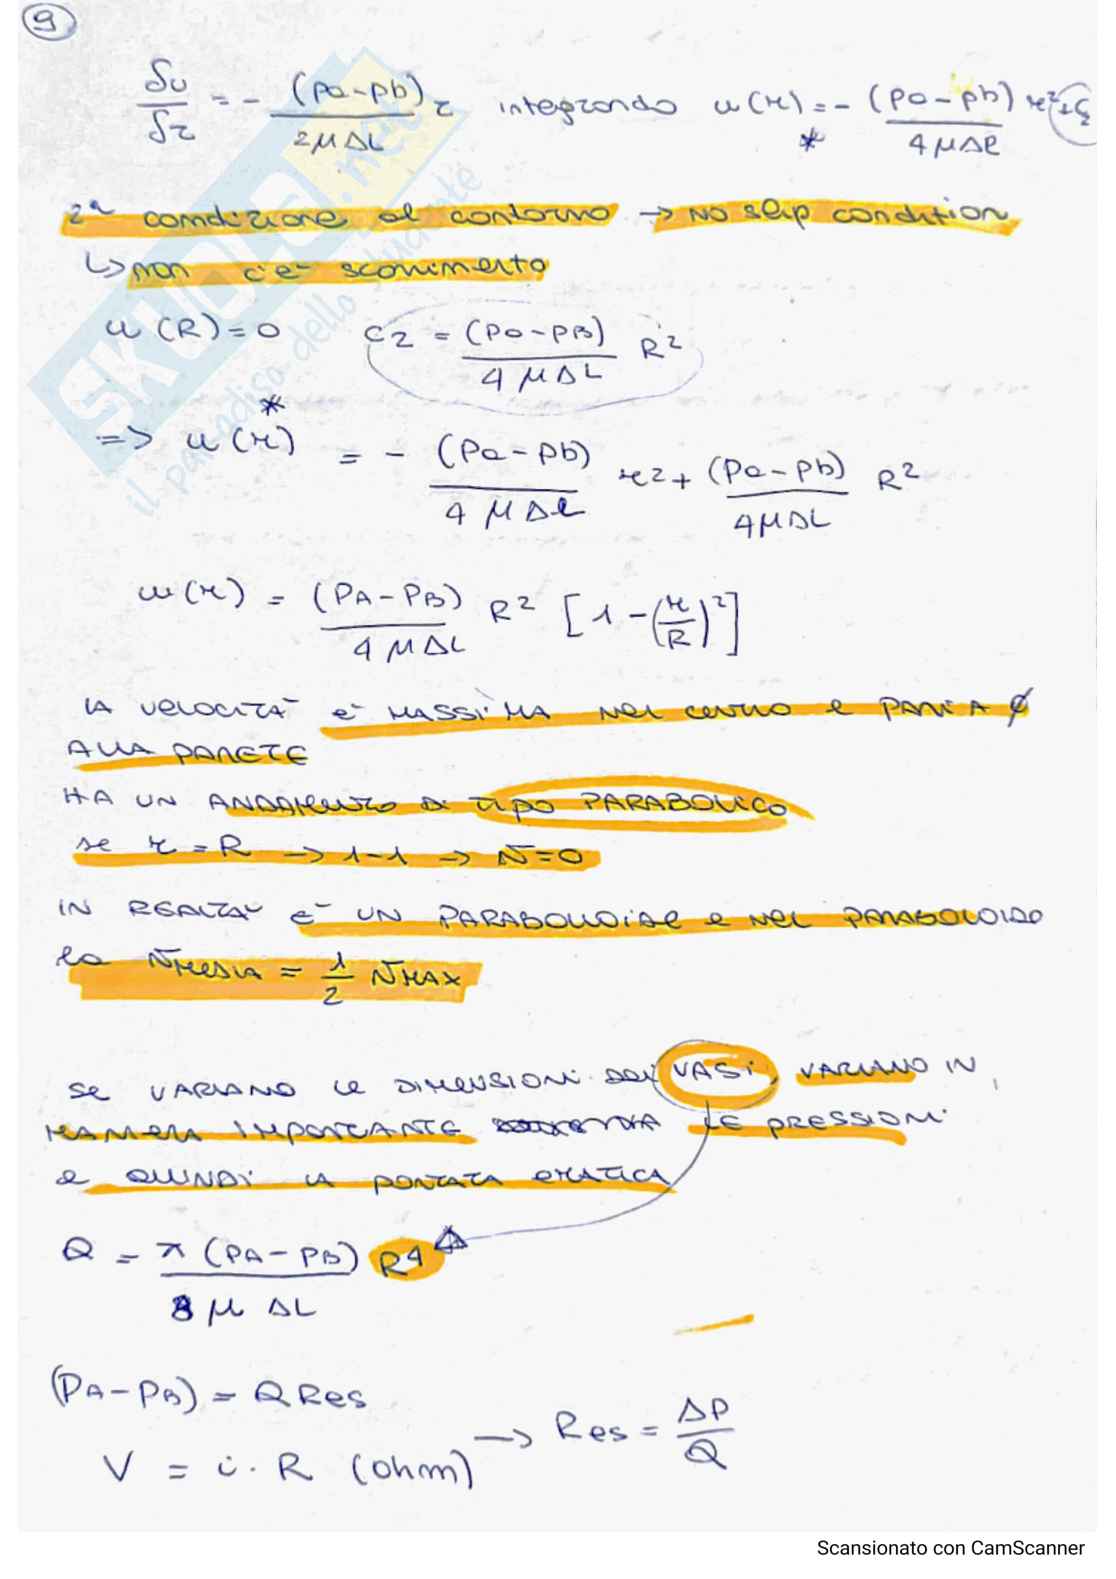 9
δu/δr = - (pa-pb)/(2μΔL) r   integrando   u(r) = - (pa-pb)/(4μΔl) r² + C₂
*
2ª condizione al contorno → no slip condition
↳ non c'è scorrimento
u(R) = 0   C2 = (Pa-PB)/(4μΔL) R²
*
=> u(r) = - (Pa-Pb)/(4μΔl) r² + (Pa-Pb)/(4μΔL) R²
u(r) = (PA-PB)/(4μΔL) R² [1-(r/R)²]
LA VELOCITÀ è MASSIMA nel centro e PARI A ∅
ALLA PARETE
HA UN ANDAMENTO DI TIPO PARABOLICO
se r = R → 1-1 → v=0
IN REALTÀ È UN PARABOLOIDE e nel PARABOLOIDE
la vMEDIA = 1/2 vMAX
SE VARIANO le DIMENSIONI dei VASI, VARIANO IN
MANIERA IMPORTANTE LE PRESSIONI
e QUINDI LA PORTATA EMATICA
Q = π(PA-PB)/(8μΔL) R⁴
(PA-PB) = Q Res
V = i·R (ohm) → Res = ΔP/Q
SKUOLA.net
il paradiso dello studente
Scansionato con CamScanner